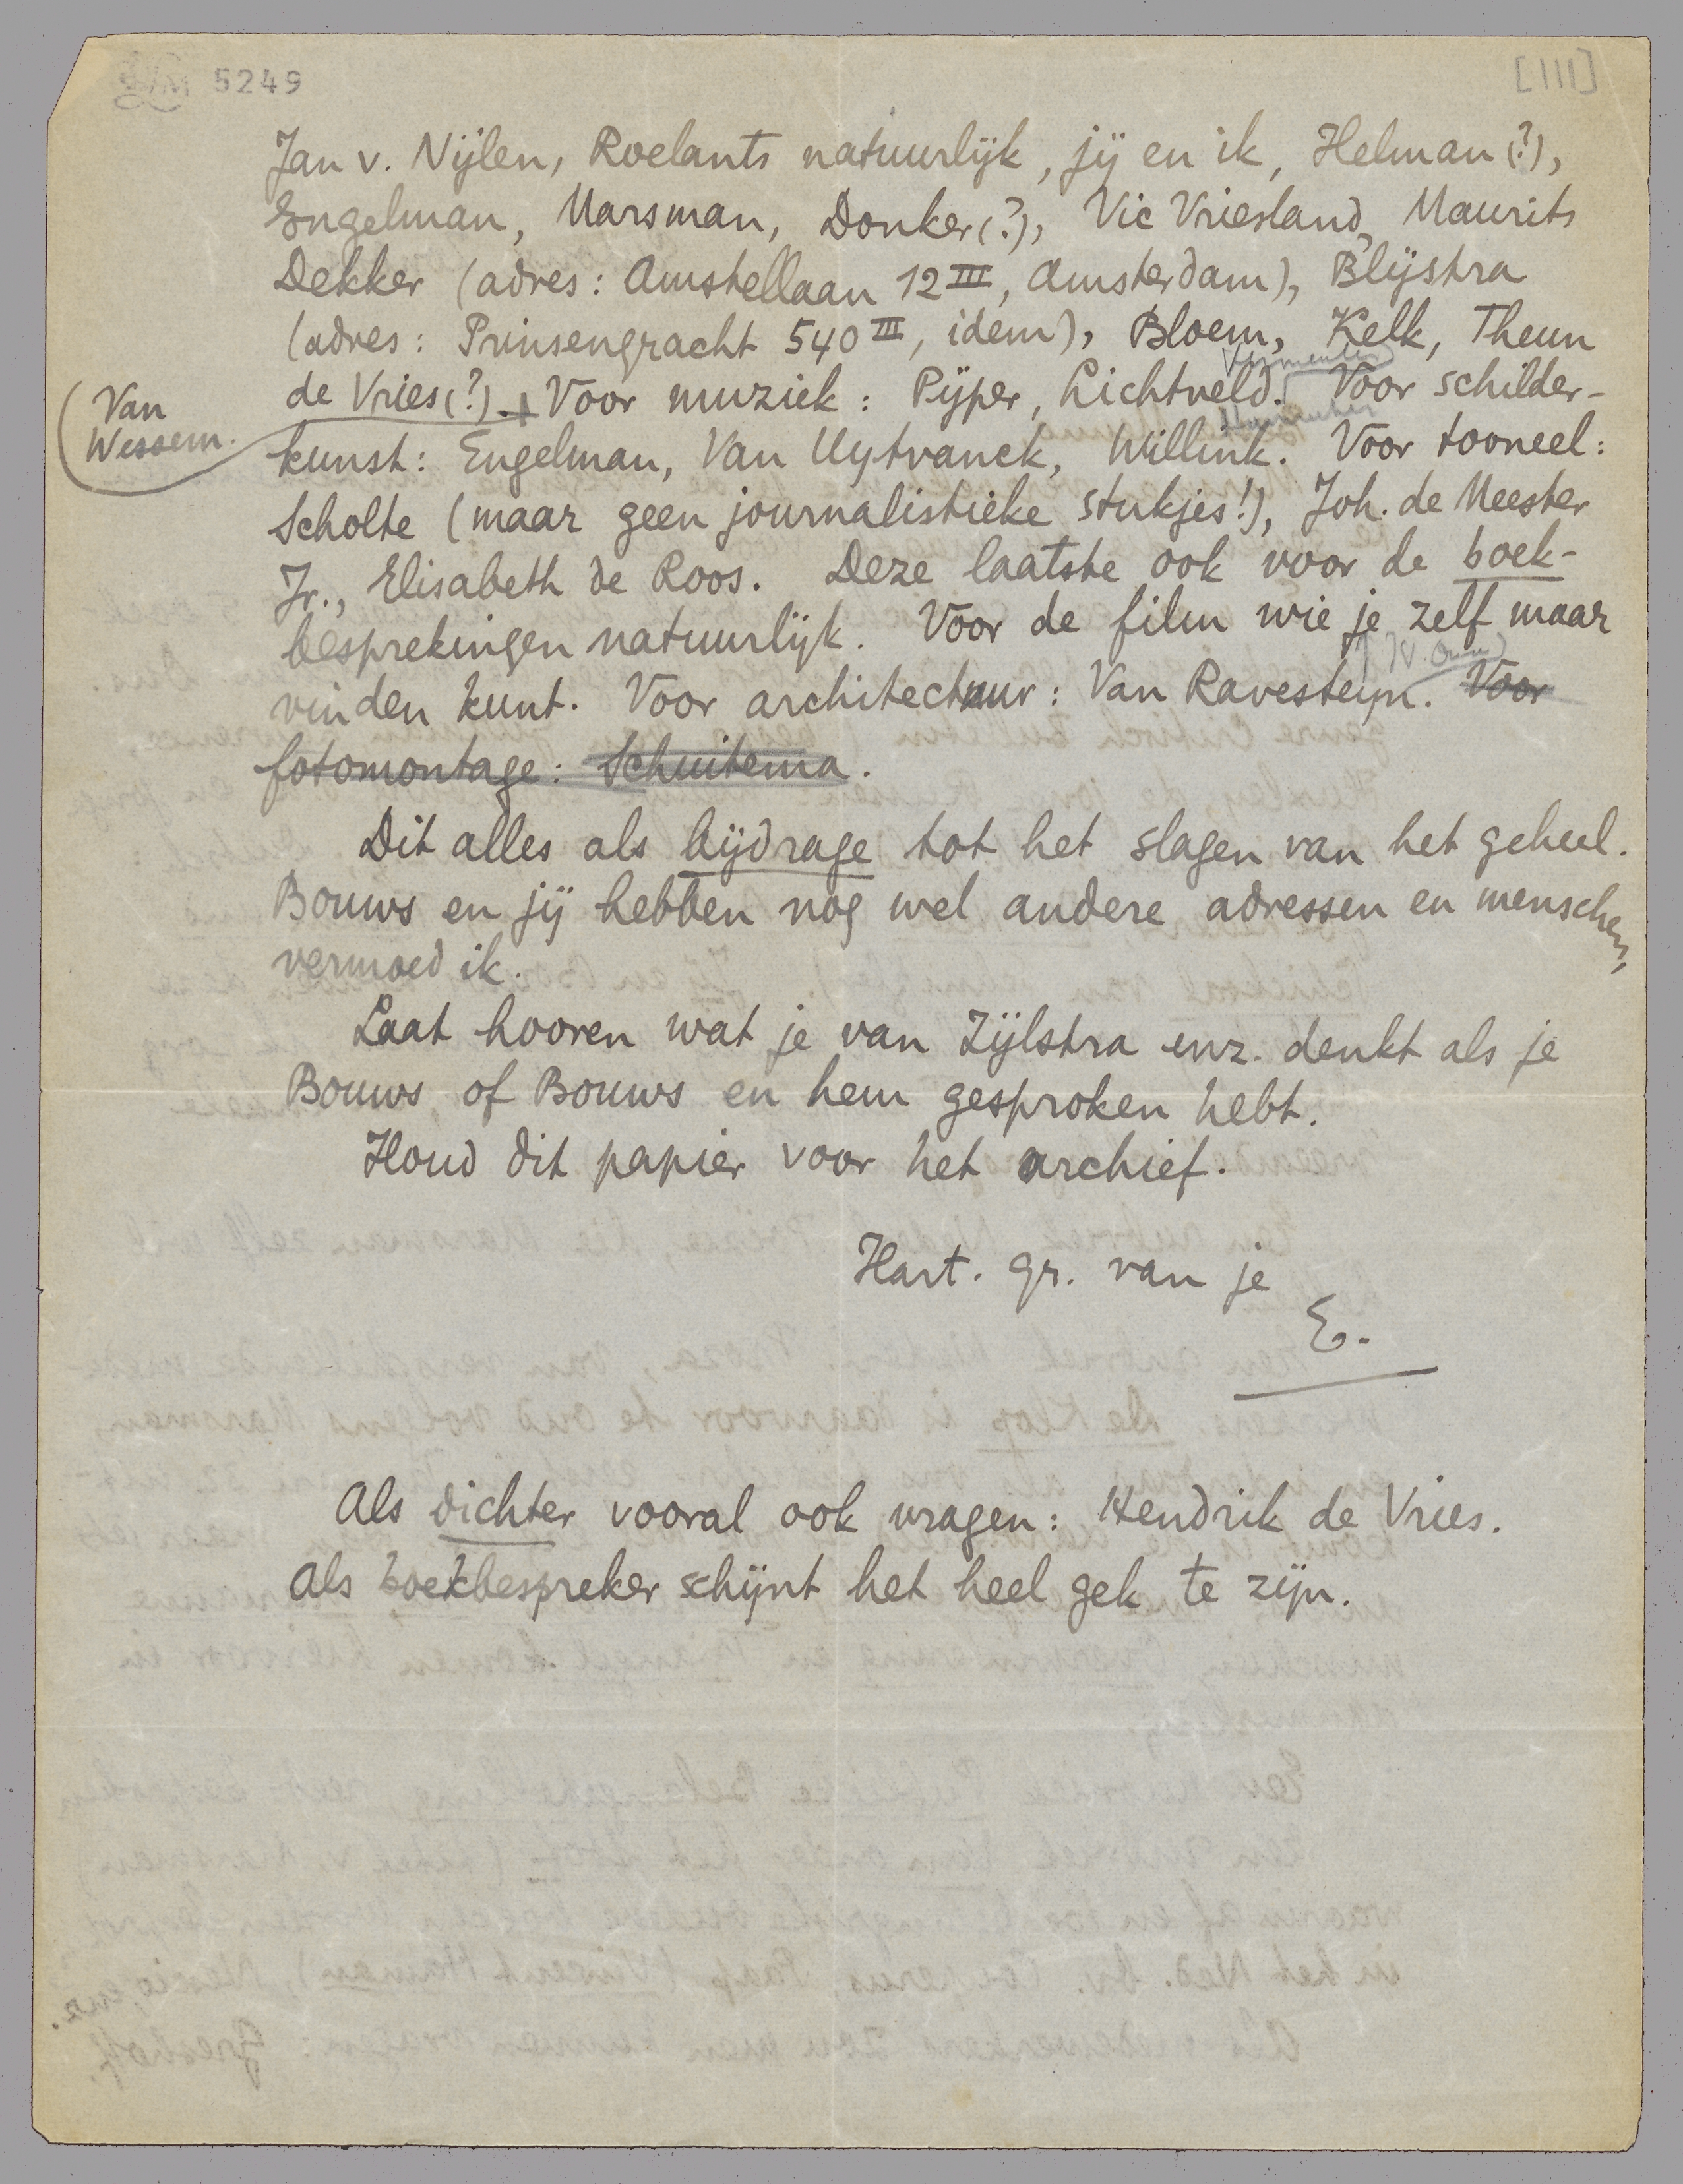 5249
[III]
Jan v. Nijlen, Roelants natuurlijk, jij en ik, Helman (?),
Engelman, Marsman, Donker (?), Vic Vriesland, Maurits
Dekker (adres: Amstellaan 12 III, Amsterdam), Blijstra
(adres: Prinsengracht 540 III, idem), Bloem, Kelk, Theun
Vermeulen
de Vries (?).+ Voor muziek: Pijper, Lichtveld. Voor schilder-
Van
Wessem.
kunst: Engelman, Van Uytvanck, Willink. Voor tooneel:
Scholte (maar geen journalistieke stukjes!), Joh. de Meester
Jr., Elisabeth de Roos. Deze laatste ook voor de boek-
besprekingen natuurlijk. Voor de film wie je zelf maar
vinden kunt. Voor architectuur: Van Ravesteyn. Voor
fotomontage: Schuitema.
Dit alles als bijdrage tot het slagen van het geheel.
Bouws en jij hebben nog wel andere adressen en menschen,
vermoed ik.
Laat hooren wat je van Zijlstra enz. denkt als je
Bouws of Bouws en hem gesproken hebt.
Houd dit papier voor het archief.
Hart. gr. van je
E.
Als dichter vooral ook vragen: Hendrik de Vries.
Als boekbespreker schijnt het heel gek te zijn.